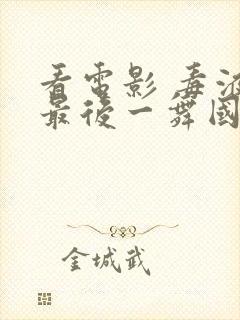 看電影 毒液
最後一舞國
金城武